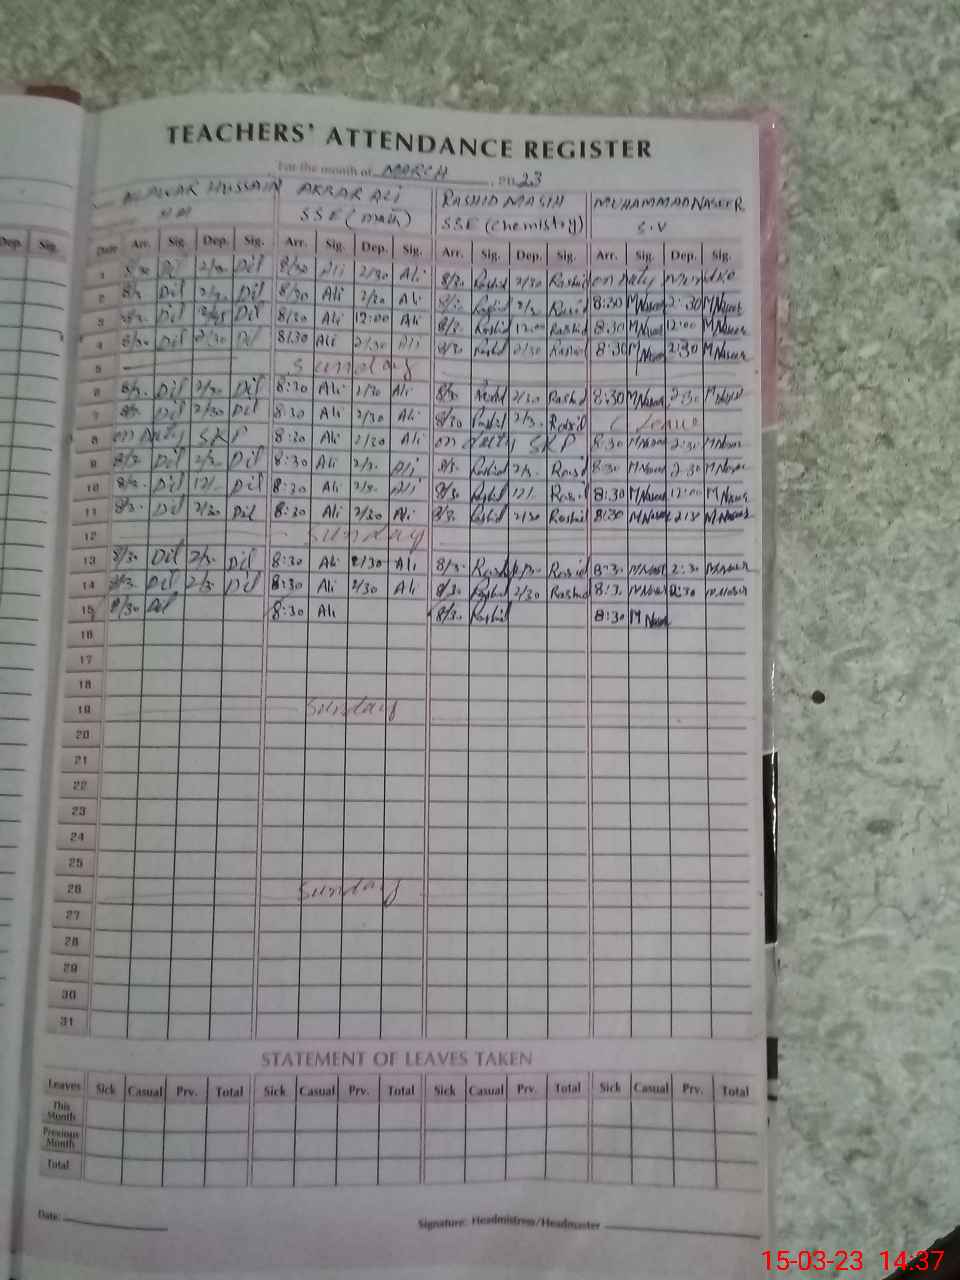 TEACHERS' ATTENDANCE REGISTER
For the month of MARCH, 2023
HUSSAIN AKRAR ALI RASHID MASIH MUHAMMAD NASEER
SSE (math) SSE (chemistry) S.V
Dep. Sig. Date Arr. Sig. Dep. Sig. Arr. Sig. Dep. Sig. Arr. Sig. Dep. Sig. Arr. Sig. Dep. Sig.
1 8/30 Dil 2/30 Dil 8/30 Ali 2/30 Ali 8/30 Rashid 2/30 Rashid on duty
2 8/30 Dil 2/30 Dil 8/30 Ali 2/30 Ali 8/30 Rashid 2/30 Rashid 8:30 MNaseer 2:30 MNaseer
3 8/30 Dil Dil 8/30 Ali 12:00 Ali 8/30 Rashid 12:00 Rashid 8:30 MNaseer 12:00 MNaseer
4 8/30 Dil 2/30 Dil 8/30 Ali 2/30 Ali 8/30 Rashid 2/30 Rashid 8:30 MNaseer 2:30 MNaseer
5 Sunday
6 8/30 Dil 2/30 Dil 8:30 Ali 2/30 Ali 8/30 Rashid 2/30 Rashid 8:30 MNaseer 2:30 MNaseer
7 8/30 Dil 2/30 Dil 8:30 Ali 2/30 Ali 8/30 Rashid 2/30 Rashid C Leave
8 on duty SKP 8:30 Ali 2/30 Ali on duty SKP 8:30 MNaseer 2:30 MNaseer
9 8/30 Dil 2/30 Dil 8:30 Ali 2/30 Ali 8/30 Rashid 2/30 Rashid 8:30 MNaseer 2:30 MNaseer
10 8/30 Dil 12/ Dil 8:30 Ali Ali 8/30 Rashid 12/ Rashid 8:30 MNaseer 12:00 MNaseer
11 8/30 Dil 2/30 Dil 8:30 Ali 2/30 Ali 8/30 Rashid 2/30 Rashid 8:30 MNaseer 2:30 MNaseer
12 Sunday
13 8/30 Dil 2/30 Dil 8:30 Ali 2/30 Ali 8/30 Rashid 2/30 Rashid 8:30 MNaseer 2:30 MNaseer
14 8/30 Dil 2/30 Dil 8:30 Ali 2/30 Ali 8/30 Rashid 2/30 Rashid 8:30 MNaseer 2:30 MNaseer
15 8/30 Dil 8:30 Ali 8/30 Rashid 8:30 MNaseer
16
17
18
19 Sunday
20
21
22
23
24
25
26 Sunday
27
28
29
30
31
STATEMENT OF LEAVES TAKEN
Leaves Sick Casual Prv. Total Sick Casual Prv. Total Sick Casual Prv. Total Sick Casual Prv. Total
This Month
Previous Month
Total
Date: Signature: Headmistress/Headmaster
15-03-23 14:37